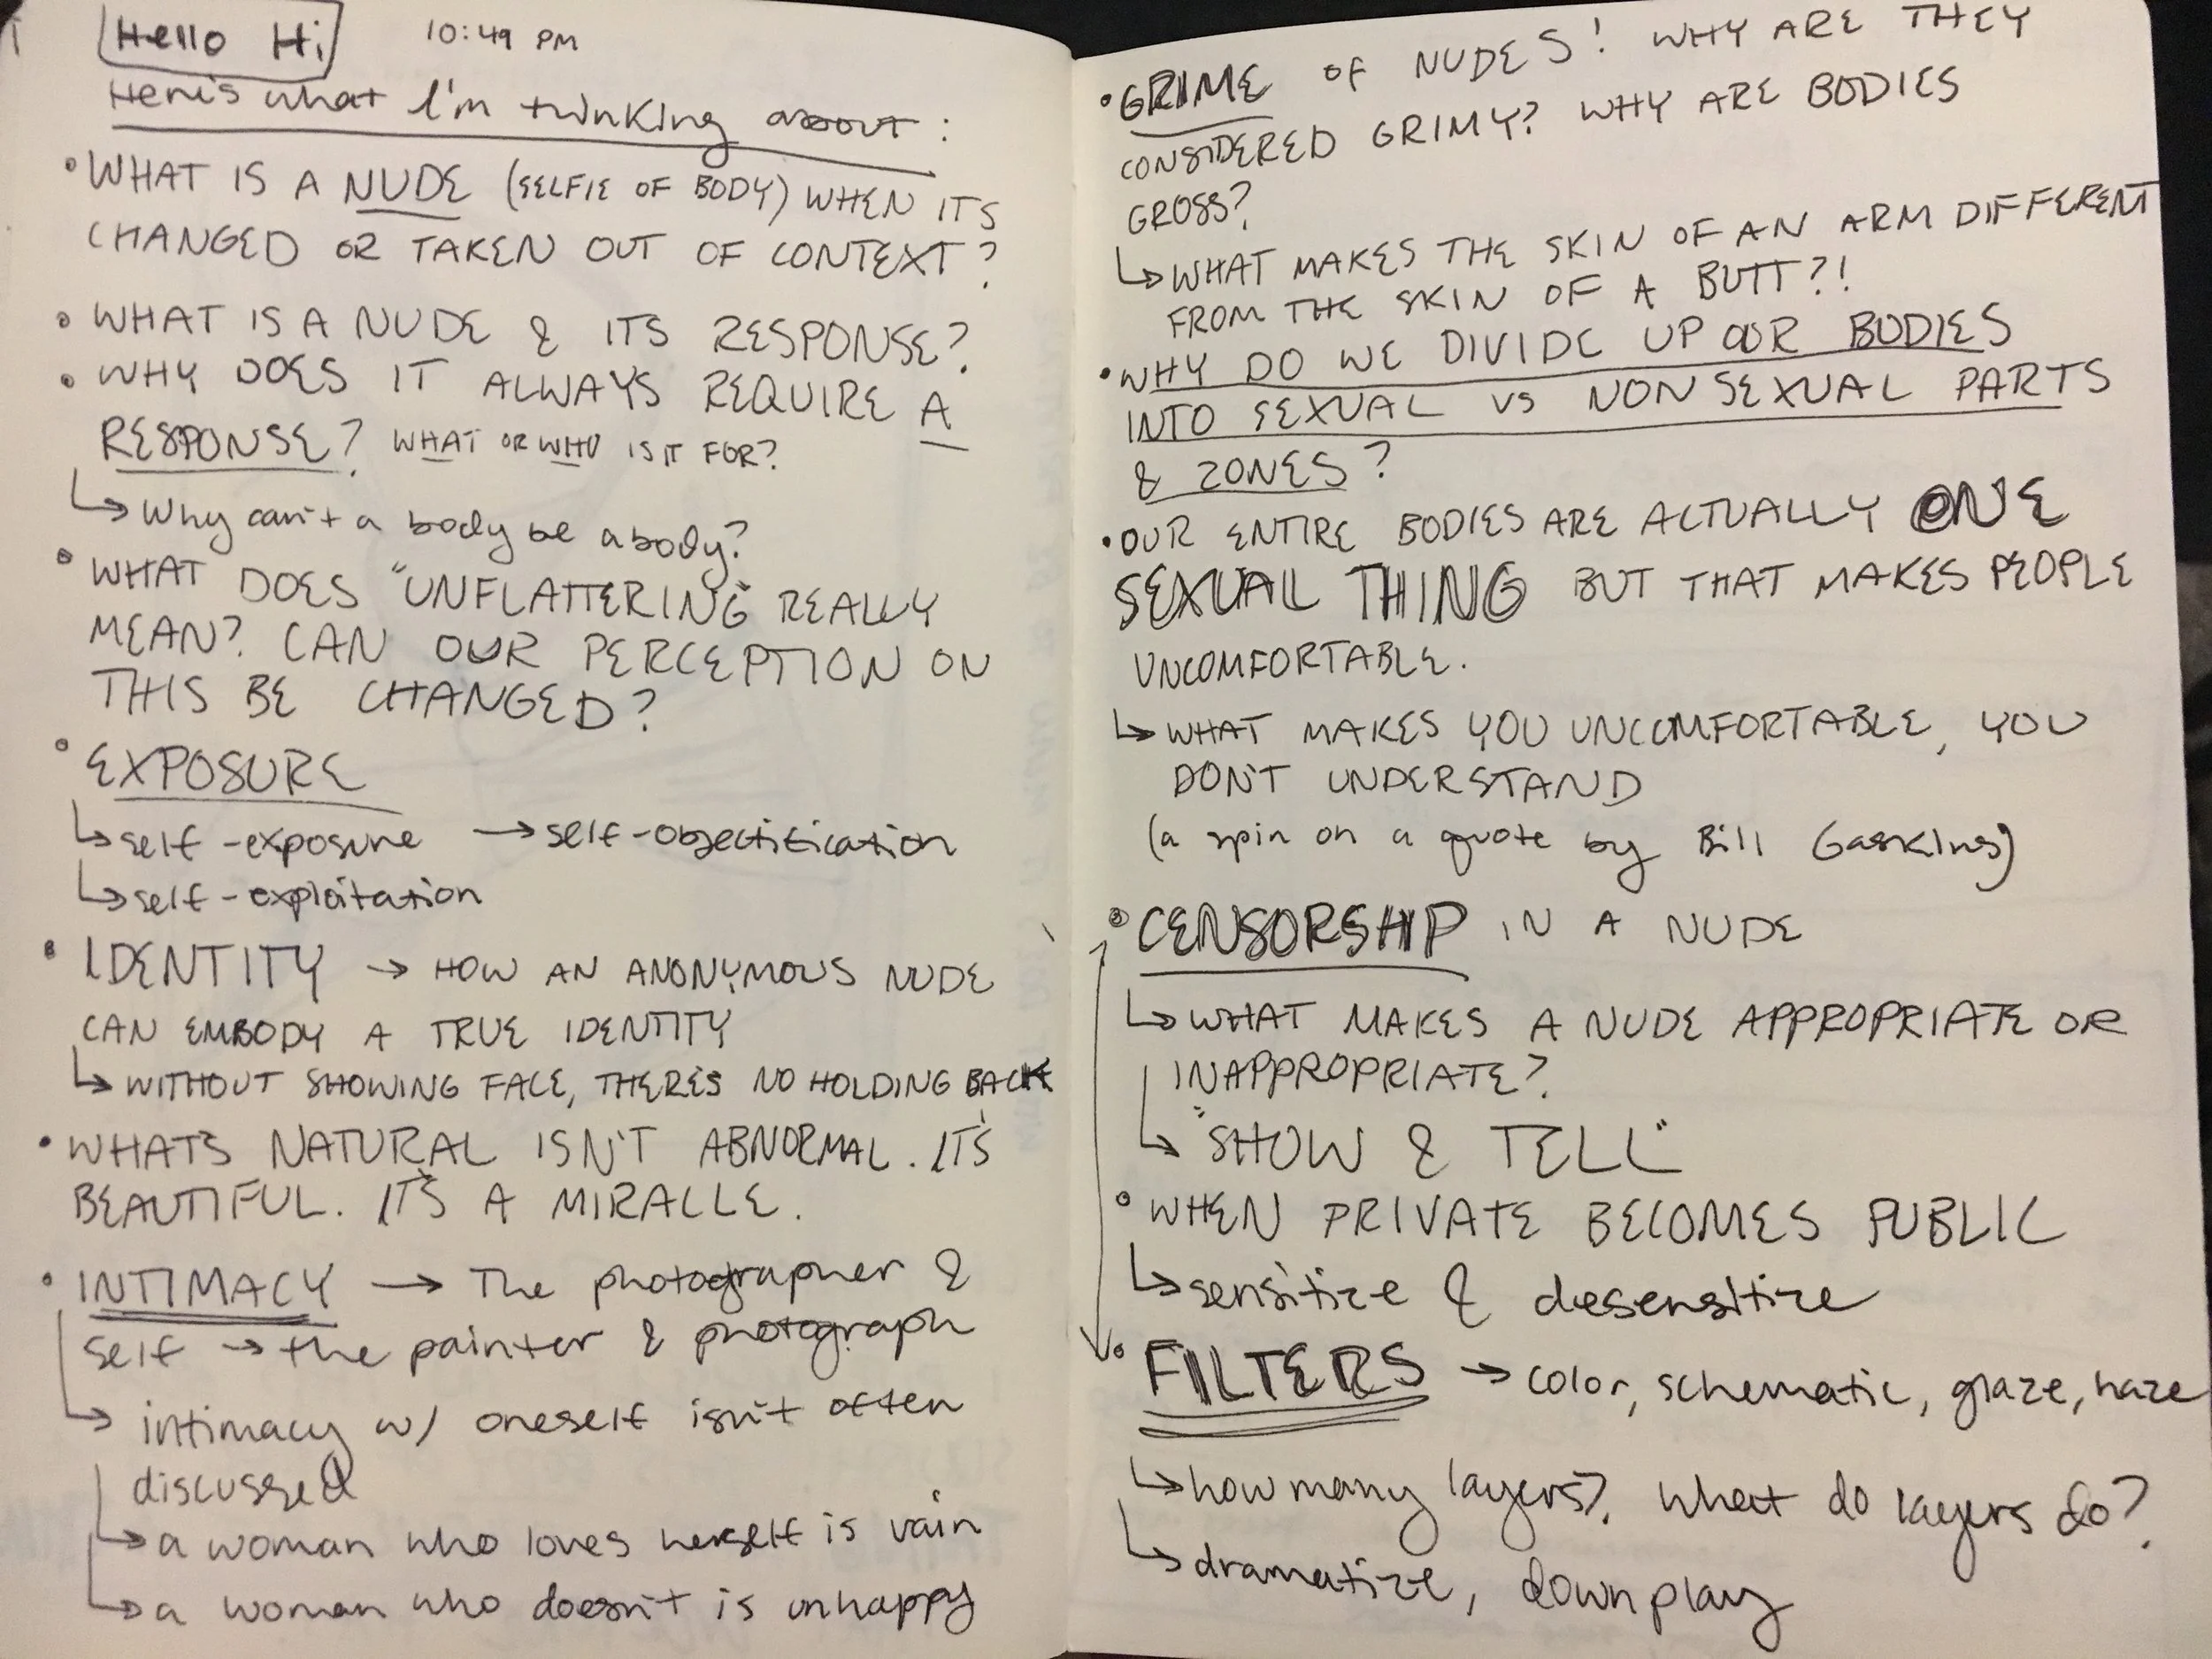 Hello Hi 10:49 PM
Here's what I'm thinking about:
• WHAT IS A NUDE (SELFIE OF BODY) WHEN ITS
CHANGED OR TAKEN OUT OF CONTEXT?
• WHAT IS A NUDE & ITS RESPONSE?
• WHY DOES IT ALWAYS REQUIRE A
RESPONSE? WHAT OR WHO IS IT FOR?
↳ Why can't a body be a body?
• WHAT DOES "UNFLATTERING" REALLY
MEAN? CAN OUR PERCEPTION ON
THIS BE CHANGED?
• EXPOSURE
↳ self-exposure → self-objectification
↳ self-exploitation
• IDENTITY → HOW AN ANONYMOUS NUDE
CAN EMBODY A TRUE IDENTITY
↳ WITHOUT SHOWING FACE, THERE'S NO HOLDING BACK
• WHAT'S NATURAL ISN'T ABNORMAL. IT'S
BEAUTIFUL. IT'S A MIRACLE.
• INTIMACY → The photographer &
self → the painter & photograph
↳ intimacy w/ oneself isn't often
discussed
↳ a woman who loves herself is vain
↳ a woman who doesn't is unhappy
• GRIME OF NUDES! WHY ARE THEY
CONSIDERED GRIMY? WHY ARE BODIES
GROSS?
↳ WHAT MAKES THE SKIN OF AN ARM DIFFERENT
FROM THE SKIN OF A BUTT?!
• WHY DO WE DIVIDE UP OUR BODIES
INTO SEXUAL VS NONSEXUAL PARTS
& ZONES?
• OUR ENTIRE BODIES ARE ACTUALLY ONE
SEXUAL THING BUT THAT MAKES PEOPLE
UNCOMFORTABLE.
↳ WHAT MAKES YOU UNCOMFORTABLE, YOU
DON'T UNDERSTAND
(a spin on a quote by Bill Gaskins)
• CENSORSHIP IN A NUDE
↳ WHAT MAKES A NUDE APPROPRIATE OR
INAPPROPRIATE?
↳ "SHOW & TELL"
• WHEN PRIVATE BECOMES PUBLIC
↳ sensitize & desensitize
• FILTERS → color, schematic, glaze, haze
↳ how many layers? What do layers do?
↳ dramatize, downplay